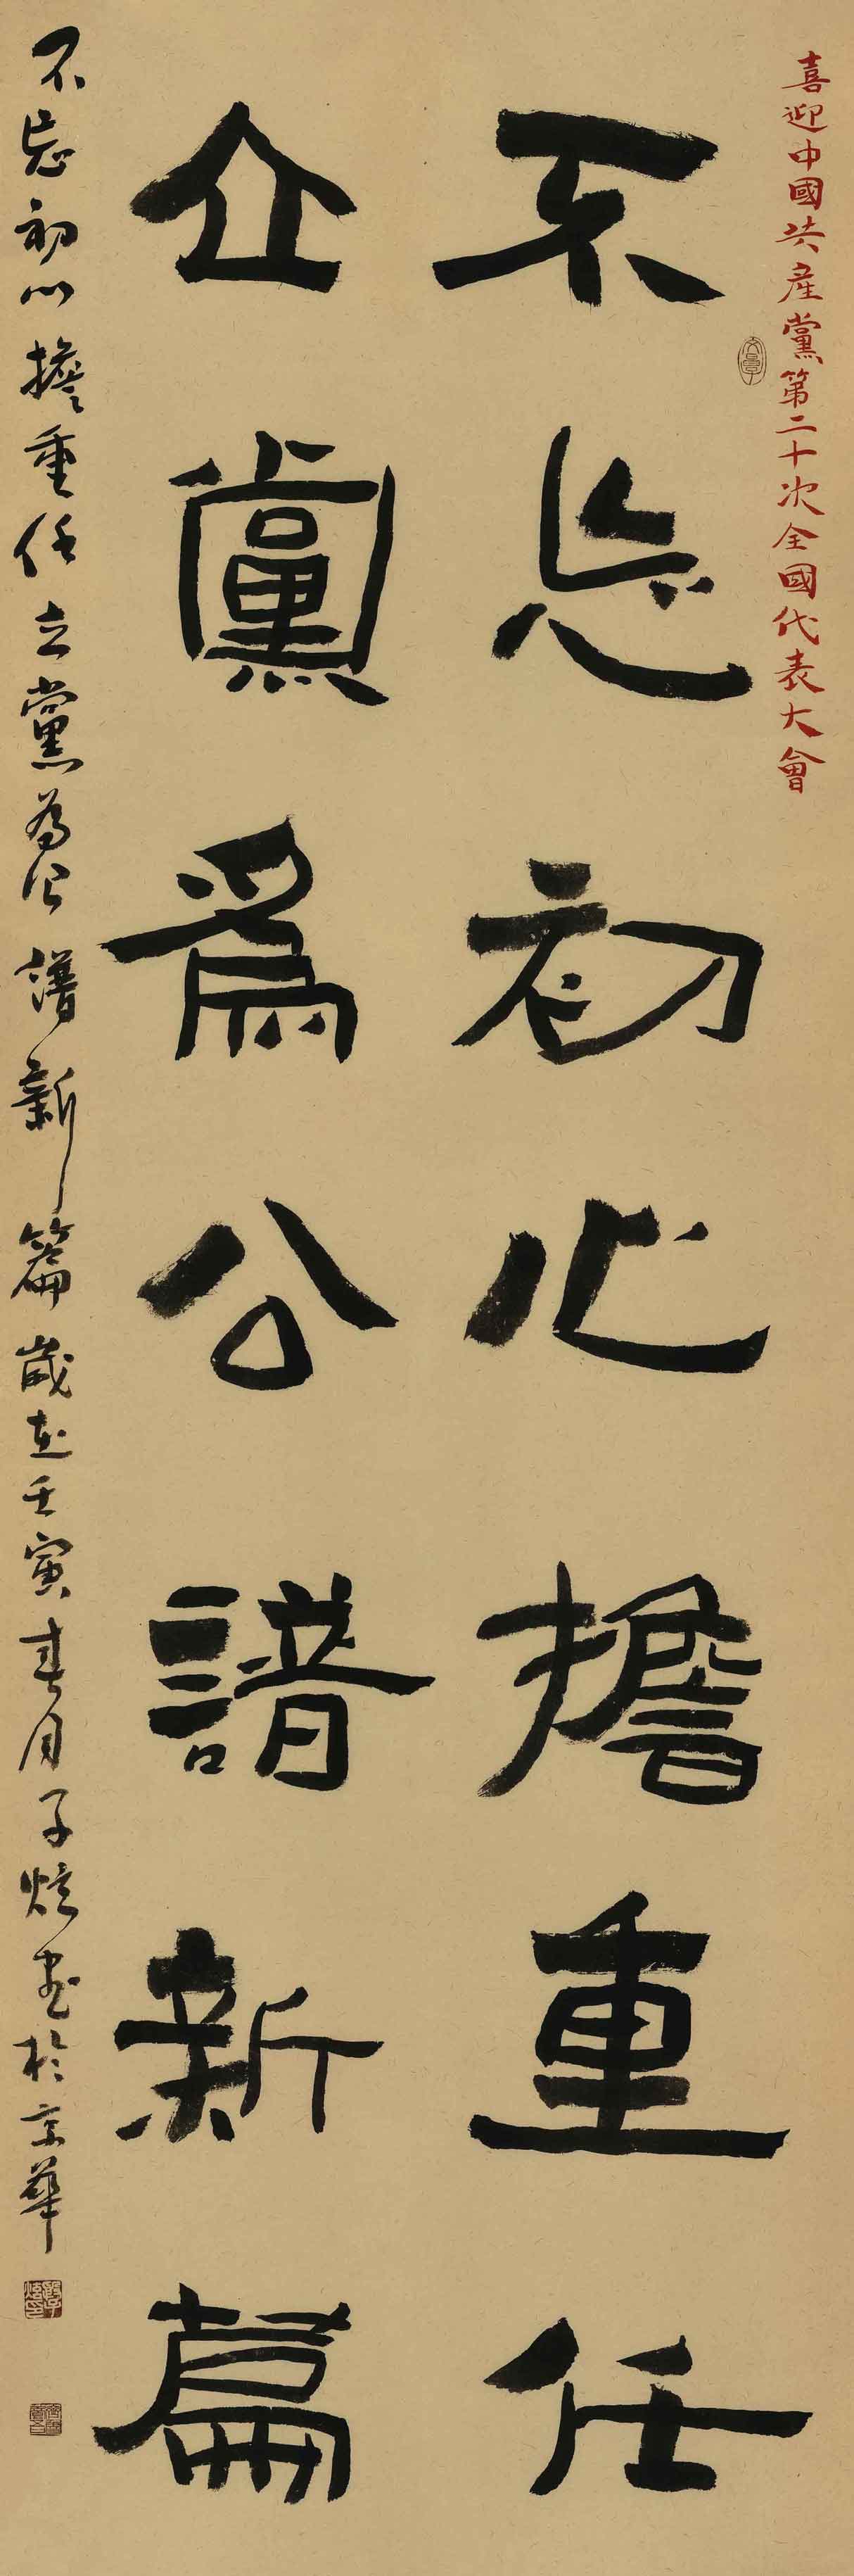 喜迎中國共產黨第二十次全國代表大會
不忘初心擔重任
立黨爲公譜新篇
不忘初心擔重任立黨為公譜新篇歲在壬寅春月子炫書於京華